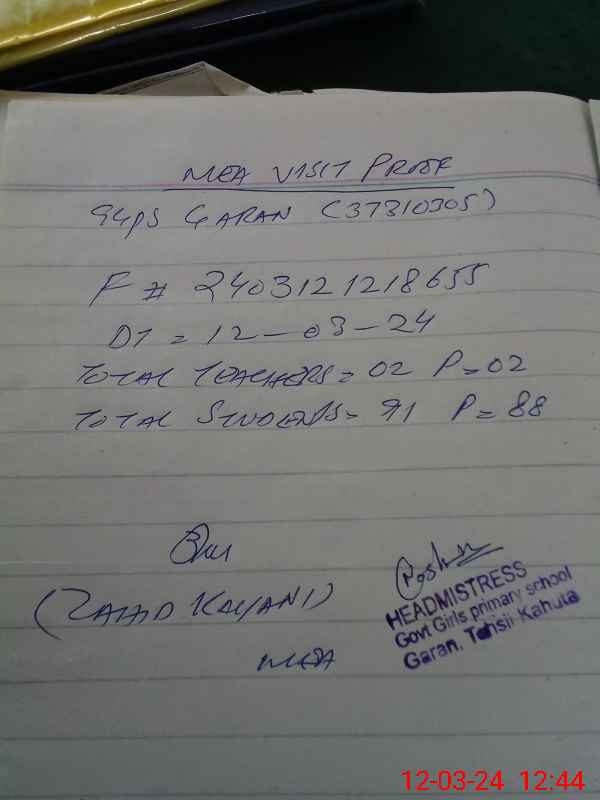 MEA VISIT PROOF
GGPS GARAN (37310305)
F # 2403121218655
DT = 12-03-24
TOTAL TEACHERS = 02 P = 02
TOTAL STUDENTS = 91 P = 88
(ZAHID KAYANI)
MEA
HEADMISTRESS
Govt Girls primary school
Garan, Tehsil Kahuta
12-03-24 12:44